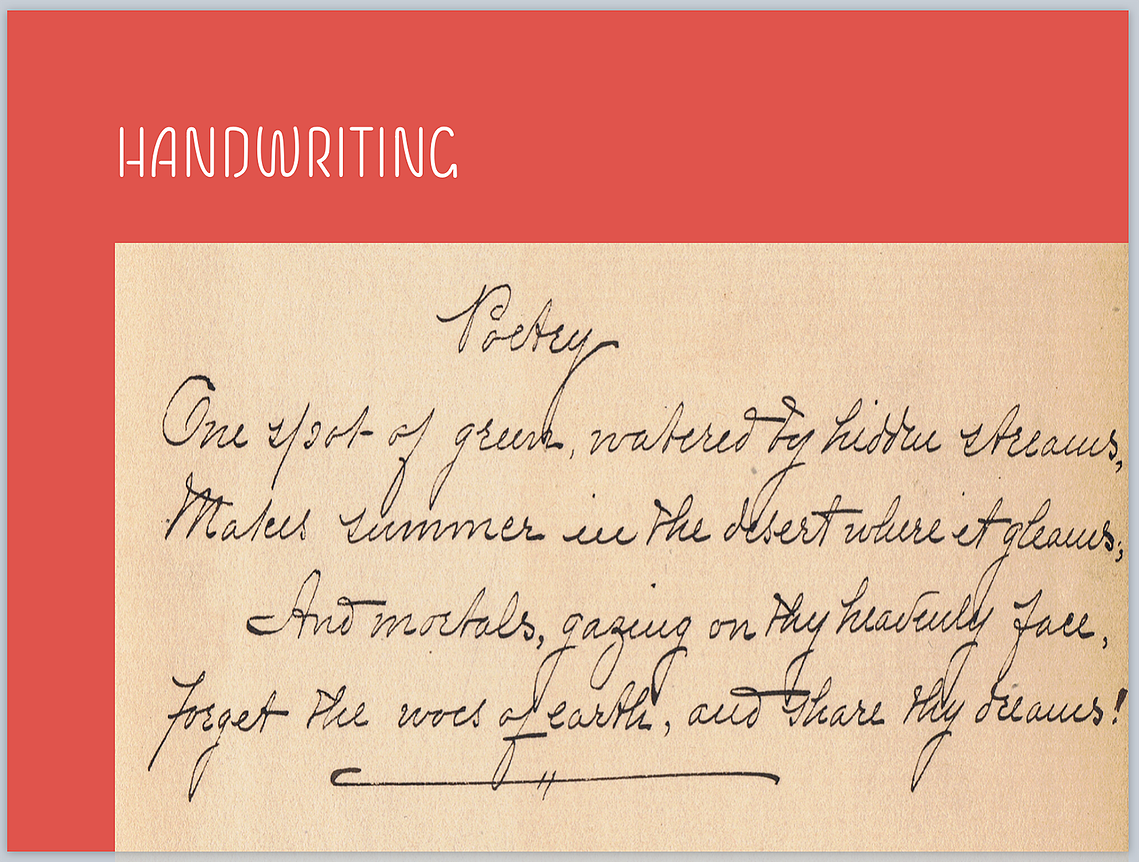 HANDWRITING
Poetry
One spot of green, watered by hidden streams,
Makes summer in the desert where it gleams;
And mortals, gazing on thy heavenly face,
Forget the woes of earth, and share thy dreams!